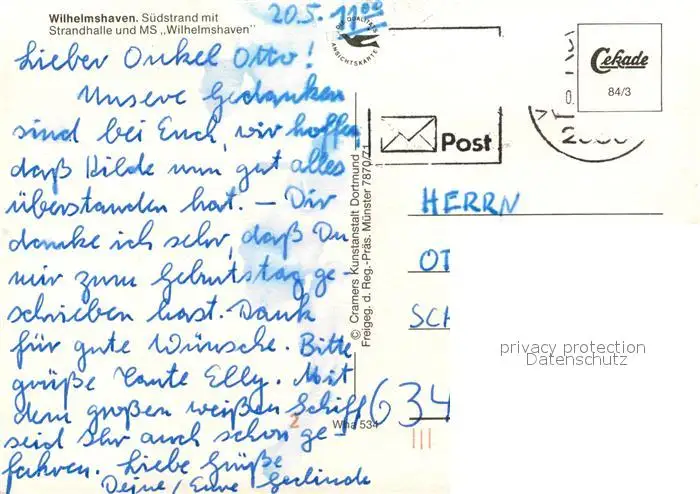 Wilhelmshaven. Südstrand mit
Strandhalle und MS „Wilhelmshaven"
20.5. 11⁰⁰
Lieber Onkel Otto!
Unsere Gedanken
sind bei Euch, wir hoffen,
daß Hilde nun gut alles
überstanden hat. – Dir
danke ich sehr, daß Du
mir zum Geburtstag ge-
schrieben hast. Dank
für gute Wünsche. Bitte
grüße Tante Elly. Mit
dem großen weißen Schiff
seid Ihr auch schon ge-
fahren. Liebe Grüße
Deine / Eure Gerlinde
QUALITÄTS
ANSICHTSKARTE
© Cramers Kunstanstalt Dortmund
Freigeg. d. Reg.-Präs. Münster 7870/71
Wha 534
2
Post
Cekade
84/3
HERRN
OT
SCH
634
privacy protection
Datenschutz